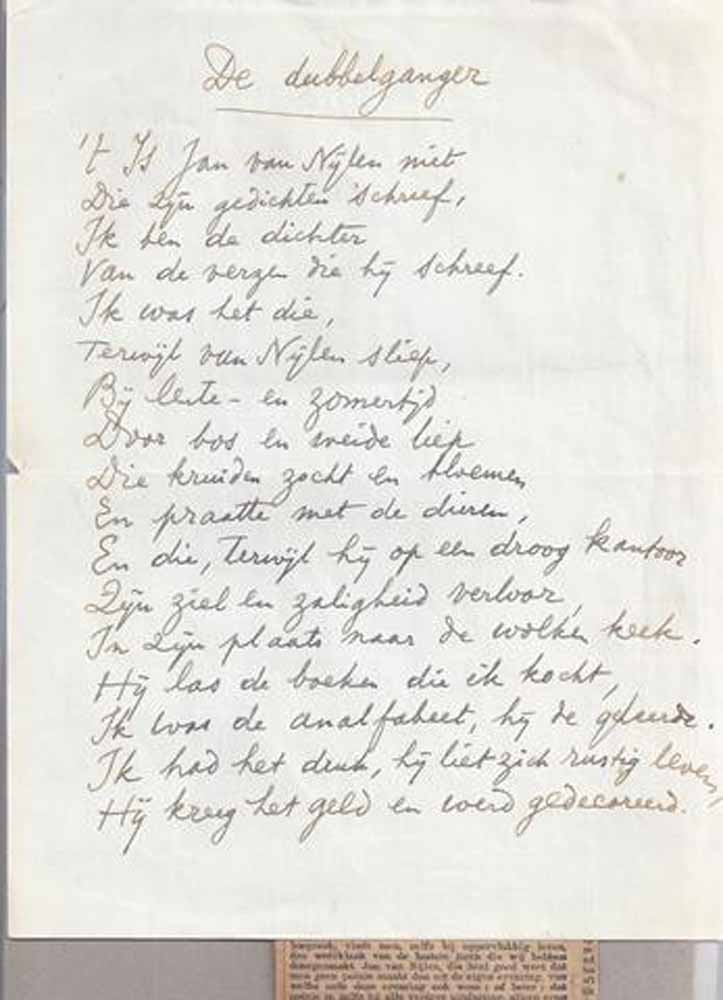 De dubbelganger
't Is Jan van Nijlen niet
Die zijn gedichten schreef,
Ik ben de dichter
Van de verzen die hij schreef.
Ik was het die,
Terwijl van Nijlen sliep,
Bij lente- en zomertijd
Door bos en weide liep
Die kruiden zocht en bloemen
En praatte met de dieren,
En die, terwijl hij op een droog kantoor
Zijn ziel en zaligheid verloor,
In zijn plaats naar de wolken keek.
Hij las de boeken die ik kocht,
Ik was de analfabeet, hij de geleerde.
Ik had het druk, hij liet zich rustig leven,
Hij kreeg het geld en werd gedecoreerd.